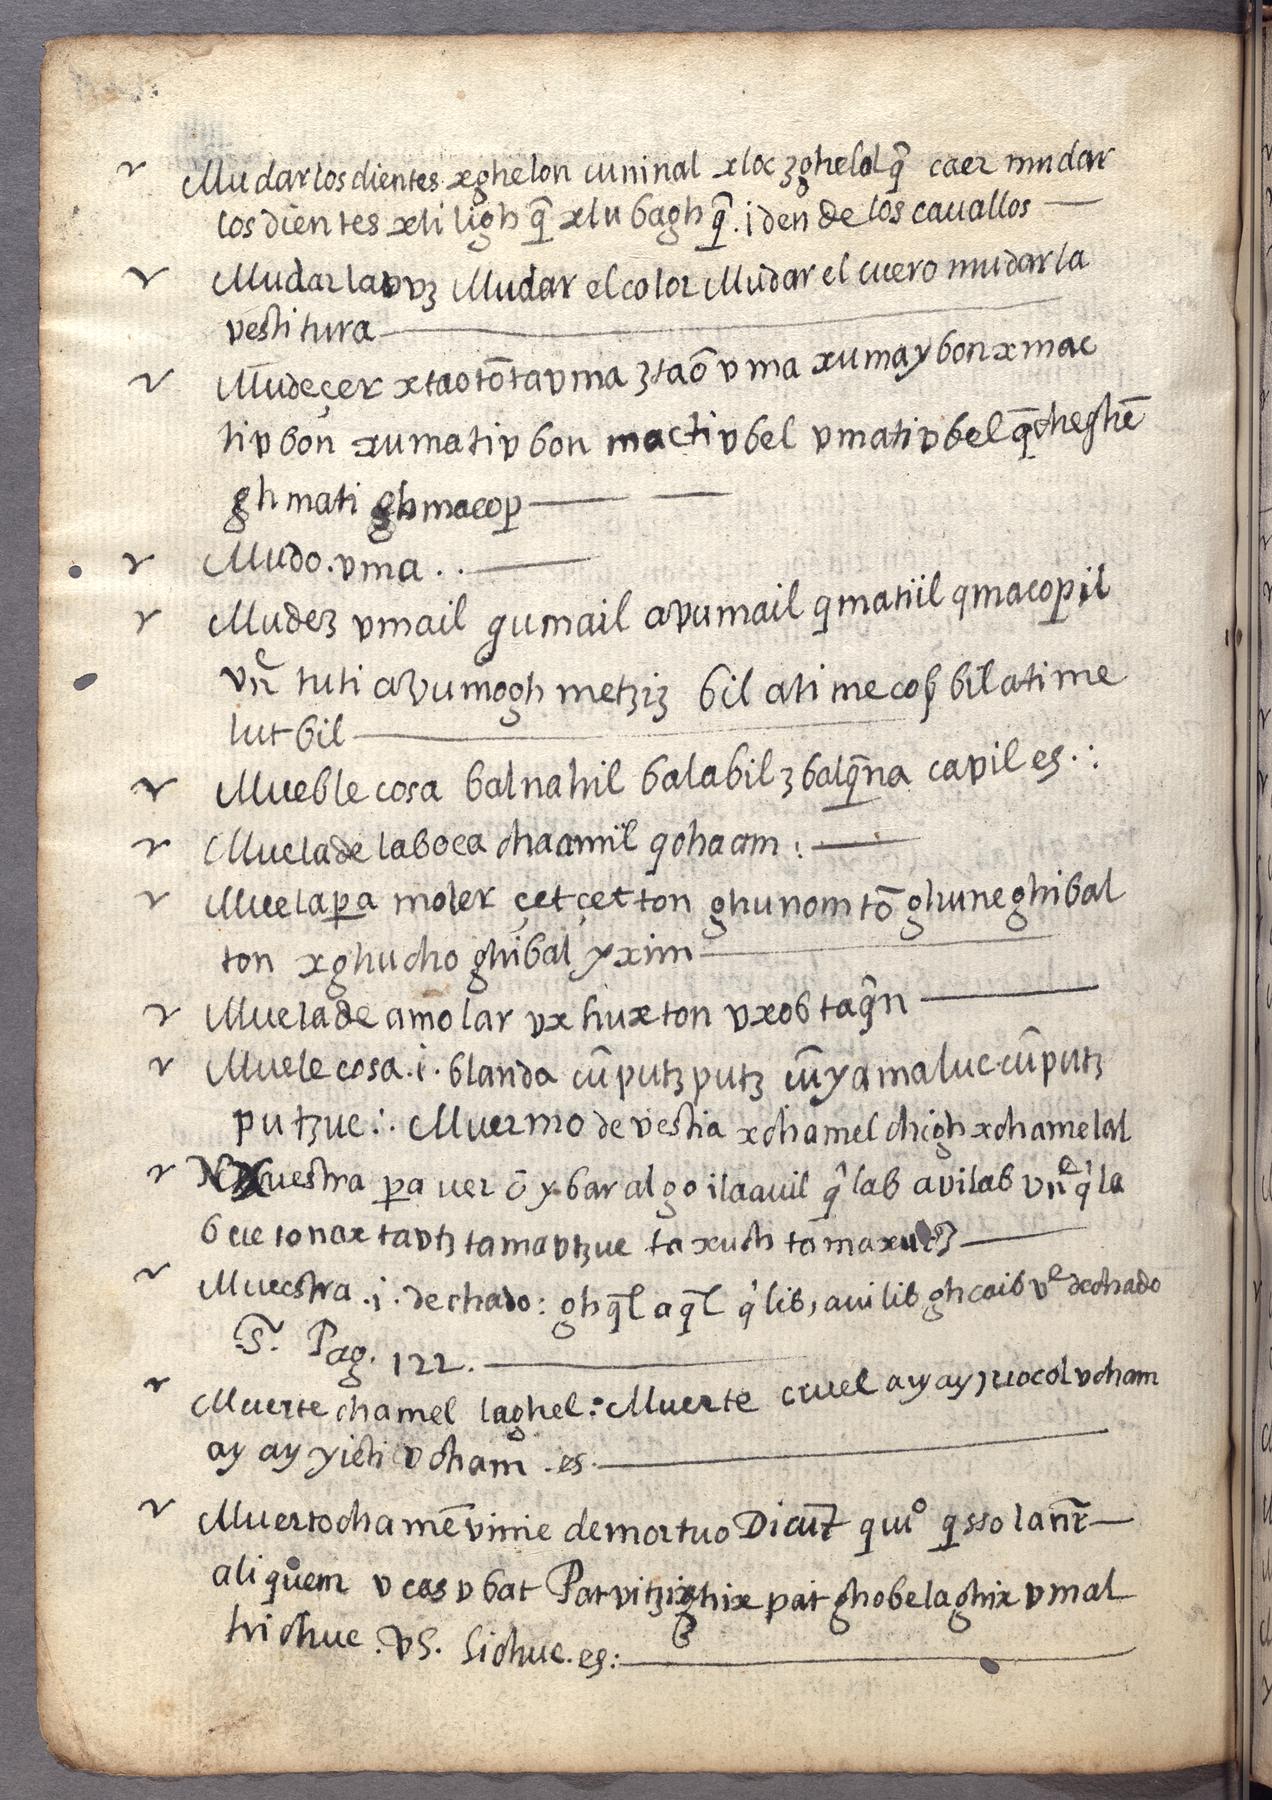 Mudar los dientes xghelon cuninal xloc ʒghelol q̃ caer mudar
los dientes xli ligh q̃ xlu bagh q̃. iden de los cauallos
Mudar la voʒ Mudar el color Mudar el cuero mudar la
vestitura
Mudeçer xtaotõ tavma ʒtaõ vma xumaybon xmac
tivbon xumativbon mactivbel vmativbel q̃cheghẽ
gh mati ghmacop
Mudo. vma . .
Mudeʒ vmail gumail avumail qmatiil qmacopil
tuti avumogh metʒiʒ bil ati me bil ati me
lut bil
Mueble cosa balnahil balabil ʒbalq̃na capil es. :
Muela de la boca chaamil qchaam :
Muela pa moler çet çetton ghunom tõ ghuneghibal
ton xghucho ghibal yxim
Muela de amolar vx huxton vxob taq̃n
Muele cosa .i. blanda cũputʒputʒ cũyamaluc. cũputʒ
putʒuc :. Muermo de vestia xchamel chigh xchamelal
Muestra pa uer õ ybar algo ilaauil q̓lab avilab q̓la
b cue tonax tavtʒ tamavtʒuc ta xuch
Muestra .i. dechado : ghq̃l aq̃l q̓lib, auilib ghcaib dechado
S. Pag. 122.
Muerte chamel laghel : Muerte cruel ay ay vcham
ay ay yicti vcham .es.
Muerto chamẽ vinic de mortuo Dicũt
aliquem vcas vbat Patvitʒighix pat ghobelaghix vmal
tvichuc. vS. Sichuc. es :